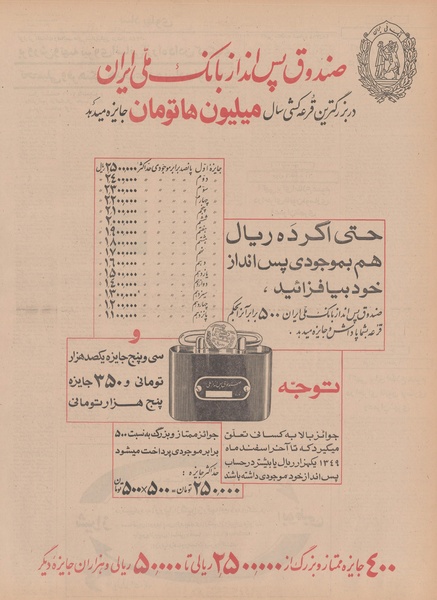 صندوق پس انداز بانک ملی ایران
در بزرگترین قرعه کشی سال میلیون ها تومان جایزه میدهد
جایزه اول پانصد برابر موجودی حداکثر ۲۵۰۰۰۰۰ ریال
دوم " " " " ۲۴۰۰۰۰۰
سوم " " " " ۲۳۰۰۰۰۰
چهارم " " " " ۲۲۰۰۰۰۰
پنجم " " " " ۲۱۰۰۰۰۰
ششم " " " " ۲۰۰۰۰۰۰
هفتم " " " " ۱۹۰۰۰۰۰
هشتم " " " " ۱۸۰۰۰۰۰
نهم " " " " ۱۷۰۰۰۰۰
دهم " " " " ۱۶۰۰۰۰۰
یازدهم " " " " ۱۵۰۰۰۰۰
دوازدهم " " " " ۱۴۰۰۰۰۰
سیزدهم " " " " ۱۳۰۰۰۰۰
چهاردهم " " " " ۱۲۰۰۰۰۰
پانزدهم " " " " ۱۱۰۰۰۰۰
حتی اگر ده ریال
هم بموجودی پس انداز
خود بیافزائید،
صندوق پس انداز بانک ملی ایران ۵۰۰ برابر آنرا بحکم
قرعه بشما پاداش و جایزه میدهد.
و
سی و پنج جایزه یکصد هزار
تومانی و ۳۵۰ جایزه
پنج هزار تومانی
توجه
جوائز بالا به کسانی تعلق
میگیرد که تا آخر اسفند ماه
۱۳۴۹ یکهزار ریال یا بیشتر در حساب
پس انداز خود موجودی داشته باشند
جوائز ممتاز و بزرگ به نسبت ۵۰۰
برابر موجودی پرداخت میشود
حداکثر جایزه:
۲۵۰,۰۰۰ تومان = ۵۰۰×۵۰۰ تومان
۴۰۰ جایزه ممتاز و بزرگ از ۲,۵۰۰,۰۰۰ ریالی تا ۵۰,۰۰۰ ریالی و هزاران جایزه دیگر